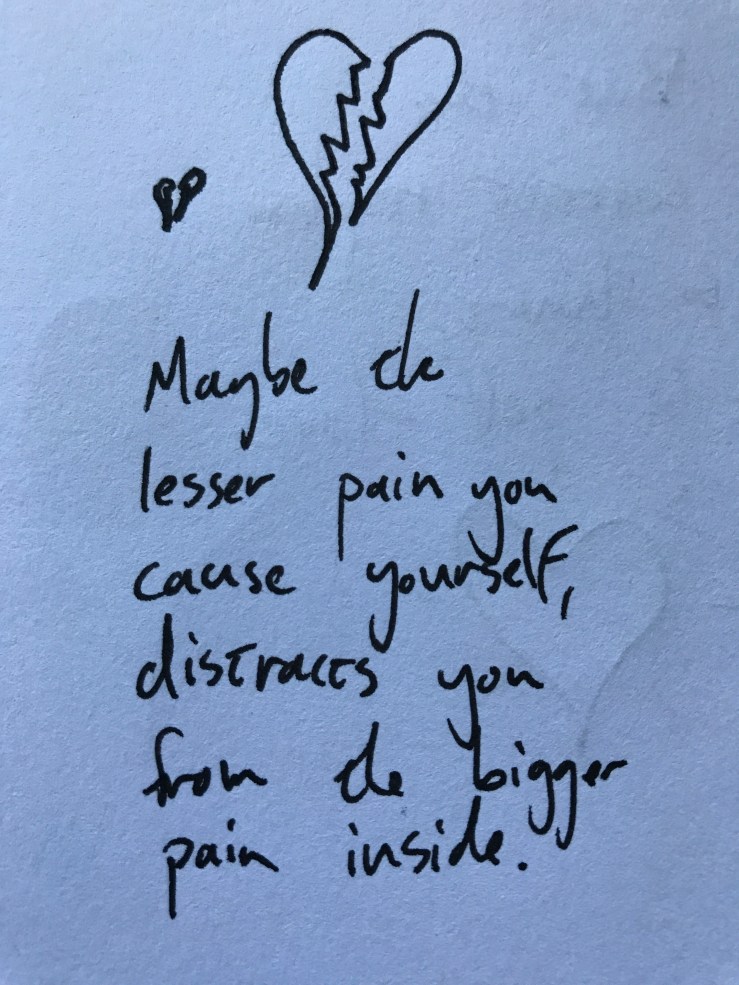 Maybe de
lesser pain you
cause yourself,
distracts you
from de bigger
pain inside.